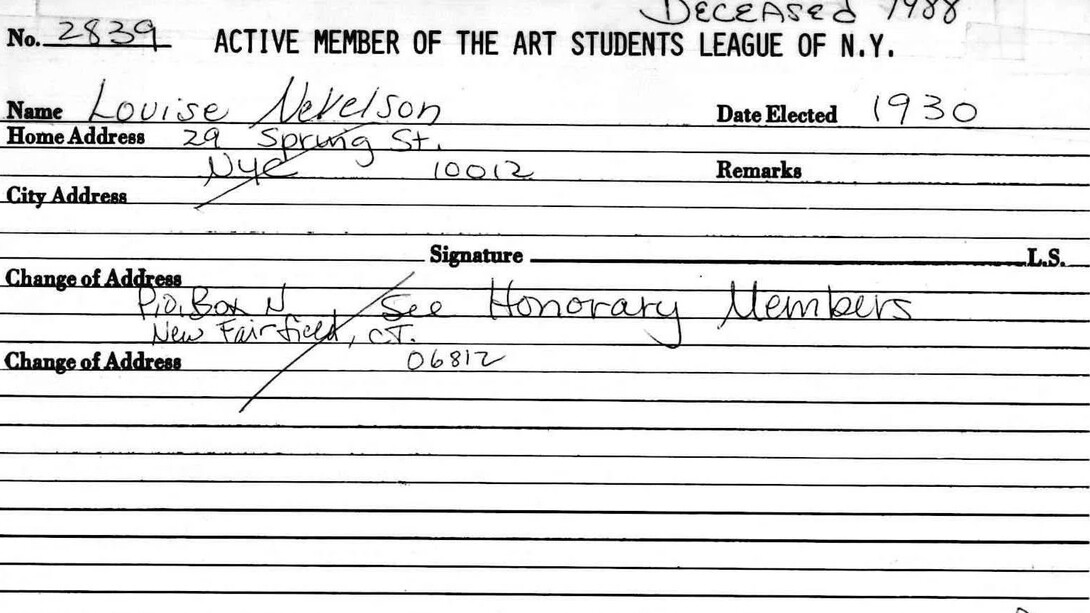 DECEASED 1988
No. 2839 ACTIVE MEMBER OF THE ART STUDENTS LEAGUE OF N.Y.
Name Louise Nevelson Date Elected 1930
Home Address 29 Spring St.
NYC 10012 Remarks
City Address
Signature L.S.
Change of Address
P.O. Box N See Honorary Members
New Fairfield, CT.
Change of Address 06812